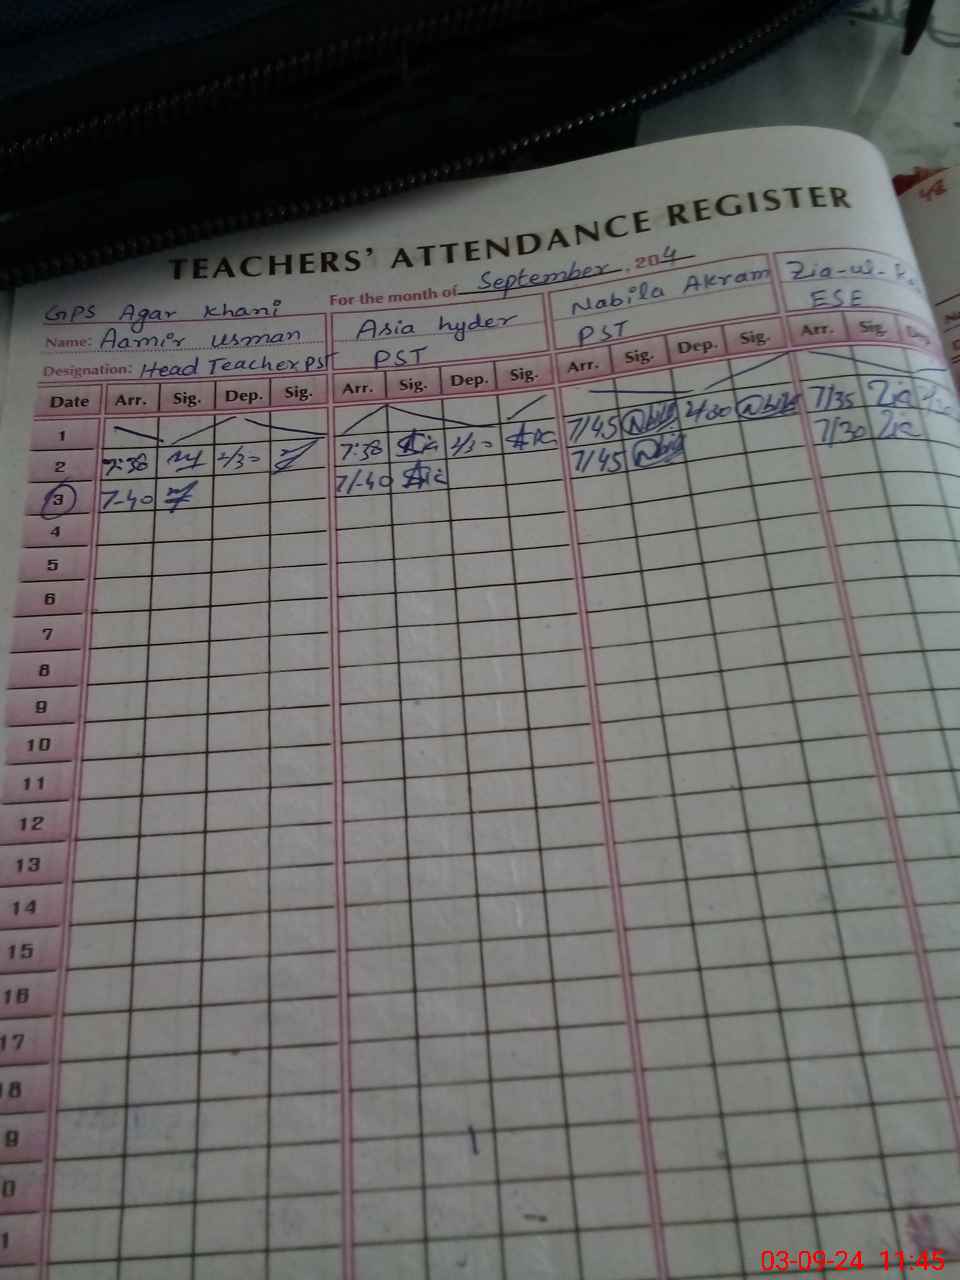 TEACHERS' ATTENDANCE REGISTER
For the month of September, 2024
GPS Agar Khani
Name: Aamir Usman
Designation: Head Teacher PST
Asia hyder
PST
Nabila Akram
PST
Zia-ul-
ESE
Date Arr. Sig. Dep. Sig. Arr. Sig. Dep. Sig. Arr. Sig. Dep. Sig. Arr. Sig. Dep.
1
2 7:38 2/30 7:38 2/30 7/45 2/30 7/35 Zia
3 7-40 7/-40 7/45 7/30 Zia
4
5
6
7
8
9
10
11
12
13
14
15
16
17
18
9
0
1
03-09-24 11:45